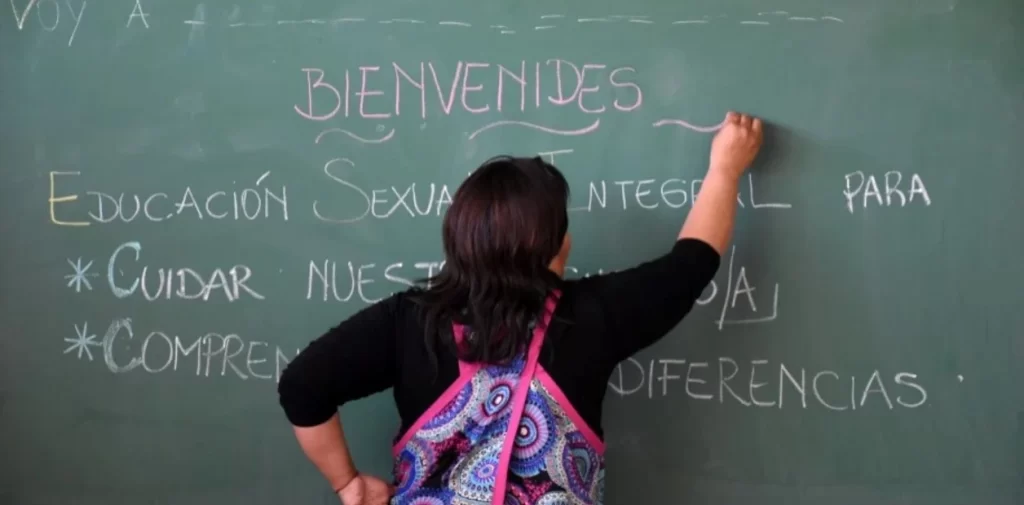 VOY A
BIENVENIDES
EDUCACIÓN SEXUA INTEGERL PARA
* CUIDAR NUEST /A
* COMPREN DIFERENCIAS.